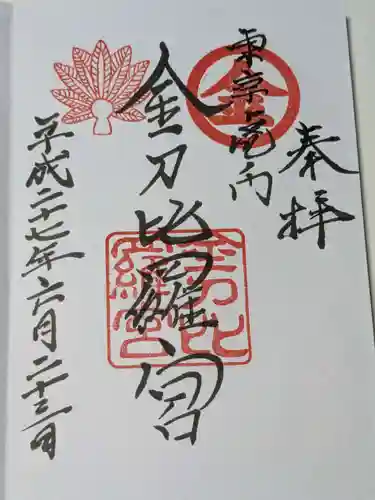 奉拝
東京虎ノ門
金
金刀比羅宮
金刀比羅宮
平成二十七年六月二十三日